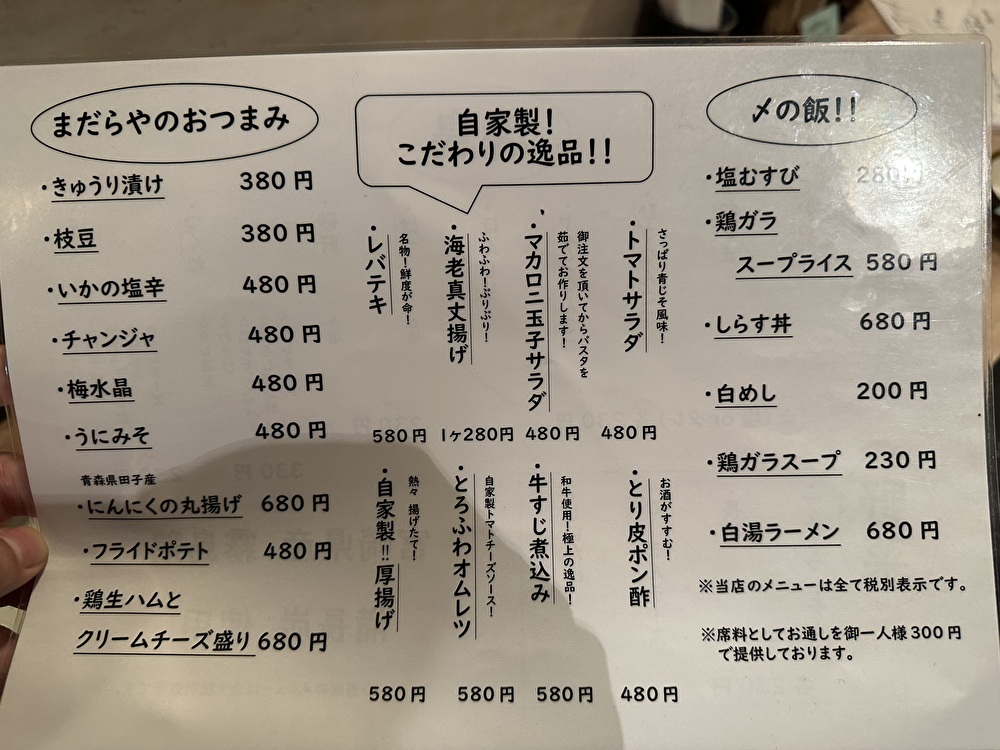 まだらやのおつまみ
・きゅうり漬け 380円
・枝豆 380円
・いかの塩辛 480円
・チャンジャ 480円
・梅水晶 480円
・うにみそ 480円
青森県田子産
・にんにくの丸揚げ 680円
・フライドポテト 480円
・鶏生ハムと
クリームチーズ盛り 680円
自家製!
こだわりの逸品!!
さっぱり青じそ風味!
・トマトサラダ
480円
御注文を頂いてからパスタを
茹でてお作りします!
・マカロニ玉子サラダ
480円
ふわふわ!ぷりぷり!
・海老真丈揚げ
1ヶ280円
名物!鮮度が命!
・レバテキ
580円
お酒がすすむ!
・とり皮ポン酢
480円
和牛使用!極上の逸品!
・牛すじ煮込み
580円
自家製トマトチーズソース!
・とろふわオムレツ
580円
熱々 揚げたて!
・自家製!!厚揚げ
580円
〆の飯!!
・塩むすび 280円
・鶏ガラ
スープライス 580円
・しらす丼 680円
・白めし 200円
・鶏ガラスープ 230円
・白湯ラーメン 680円
※当店のメニューは全て税別表示です。
※席料としてお通しを御一人様300円
で提供しております。